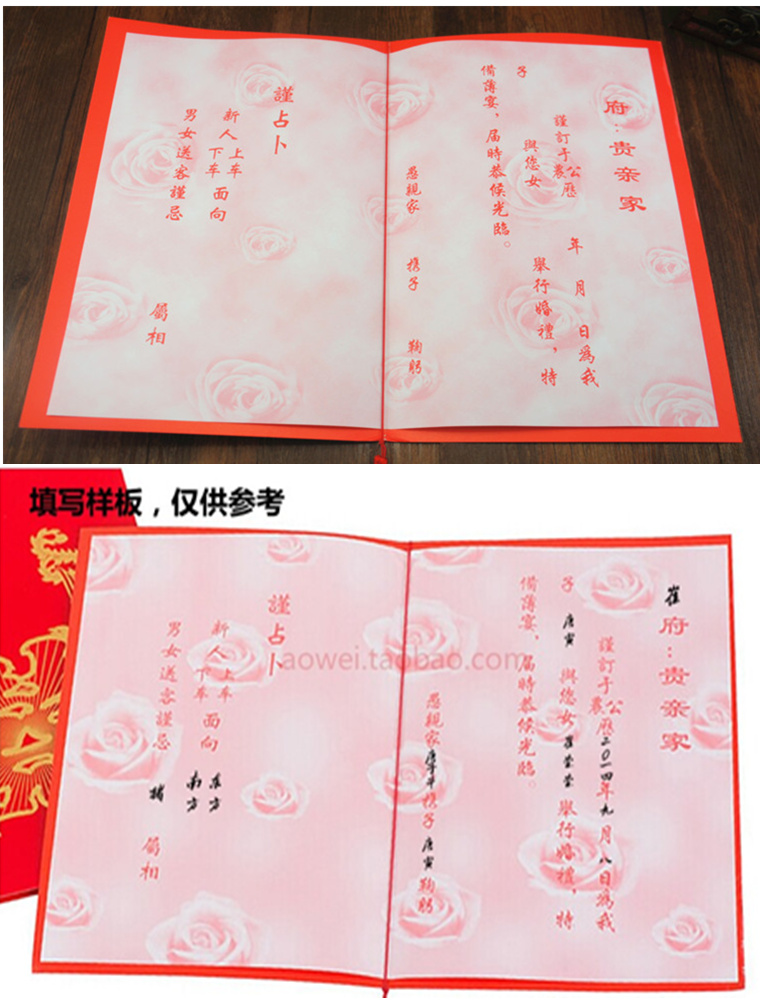 府：贵亲家
謹訂于公農曆 年 月 日為我
子 與您女 舉行婚禮，特
備薄宴，届時恭候光臨。
愚親家 携子 鞠躬
謹占卜
新人上车下车面向
男女送客謹忌 屬相
填写样板，仅供参考
崔府：贵亲家
謹訂于公農曆二〇一四年九月八日為我
子 唐寅 與您女 崔莹莹 舉行婚禮，特
備薄宴，届時恭候光臨。
愚親家 携子 唐寅 鞠躬
謹占卜
新人上车下车面向 东方 南方
男女送客謹忌 猪 屬相
aowei.taobao.com